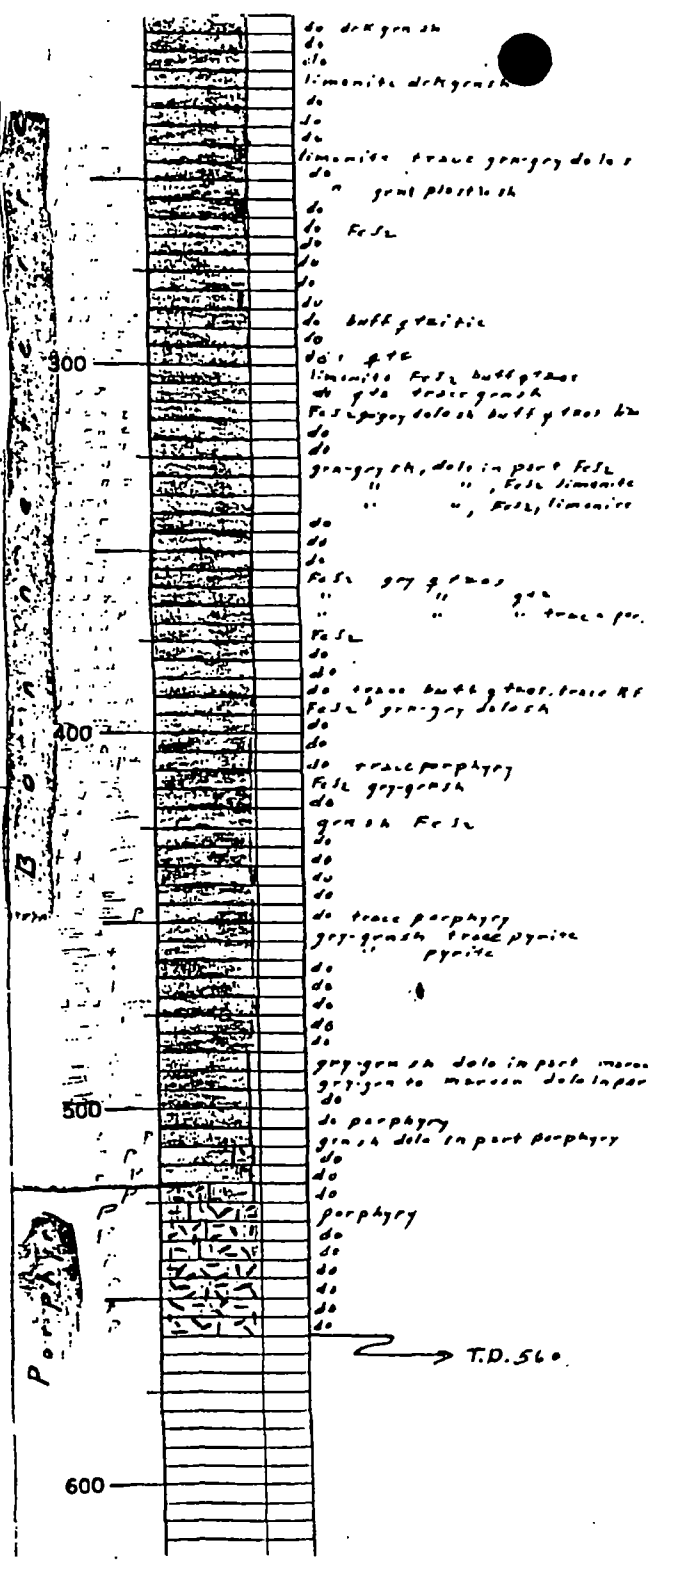 do drk grn sh
do
do
limonite drk grn sh
do
do
do
limonite trace grn-gry dolo s
do
" grnt plast sh
do
do FeS2
do
do
do
do
do buff qtzitic
do
do : qtz
limonite FeS2 buff qtzos
do qtz trace grn sh
FeS2 grn-gry dolo sh buff qtzos
do
do
grn-gry sh, dolo in part FeS2
" " , FeS2 limonite
" " , FeS2, limonite
do
do
do
FeS2 gry qtzos
" " qtz
" " " trace por.
FeS2
do
do
do trace buff qtzos. trace RF
FeS2 grn-gry dolo sh
do
do
do trace porphyry
FeS2 gry-grn sh
do
grn sh FeS2
do
do
do
do
do trace porphyry
gry-grn sh trace pyrite
" pyrite
do
do
do
do
do
gry-grn sh dolo in part maroo
gry-grn to maroon dolo in par
do
do porphyry
grn sh dolo in part porphyry
do
do
do
porphyry
do
do
do
do
do
do
T.D. 560
300
400
500
600
Bonneterre
Porphyry
P
P
P
P
P